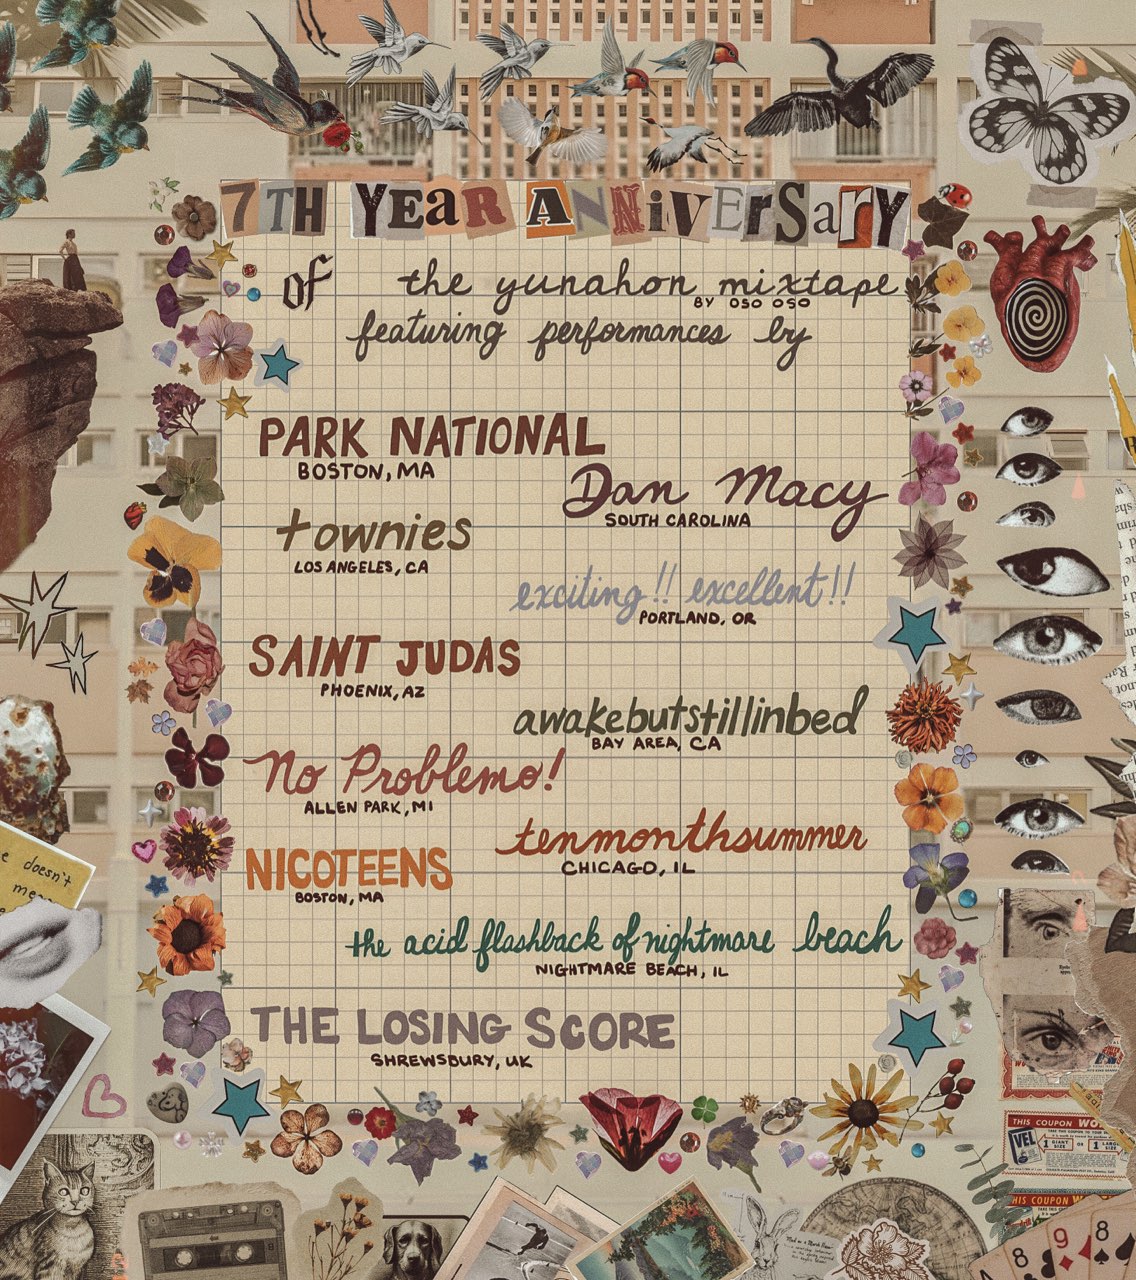 7TH YEAR ANNiVErSary
of the yunahon mixtape
BY OSO OSO
featuring performances by
PARK NATIONAL
BOSTON, MA
Dan Macy
SOUTH CAROLINA
townies
LOS ANGELES, CA
exciting!! excellent!!
PORTLAND, OR
SAINT JUDAS
PHOENIX, AZ
awakebutstillinbed
BAY AREA, CA
No Problemo!
ALLEN PARK, MI
tenmonthsummer
CHICAGO, IL
NICOTEENS
BOSTON, MA
the acid flashback of nightmare beach
NIGHTMARE BEACH, IL
THE LOSING SCORE
SHREWSBURY, UK
e doesn't
THIS COUPON WO
VEL
1 GIANT SIZE OR 1 LARGE SIZE
THIS COUPON W
8 9 8